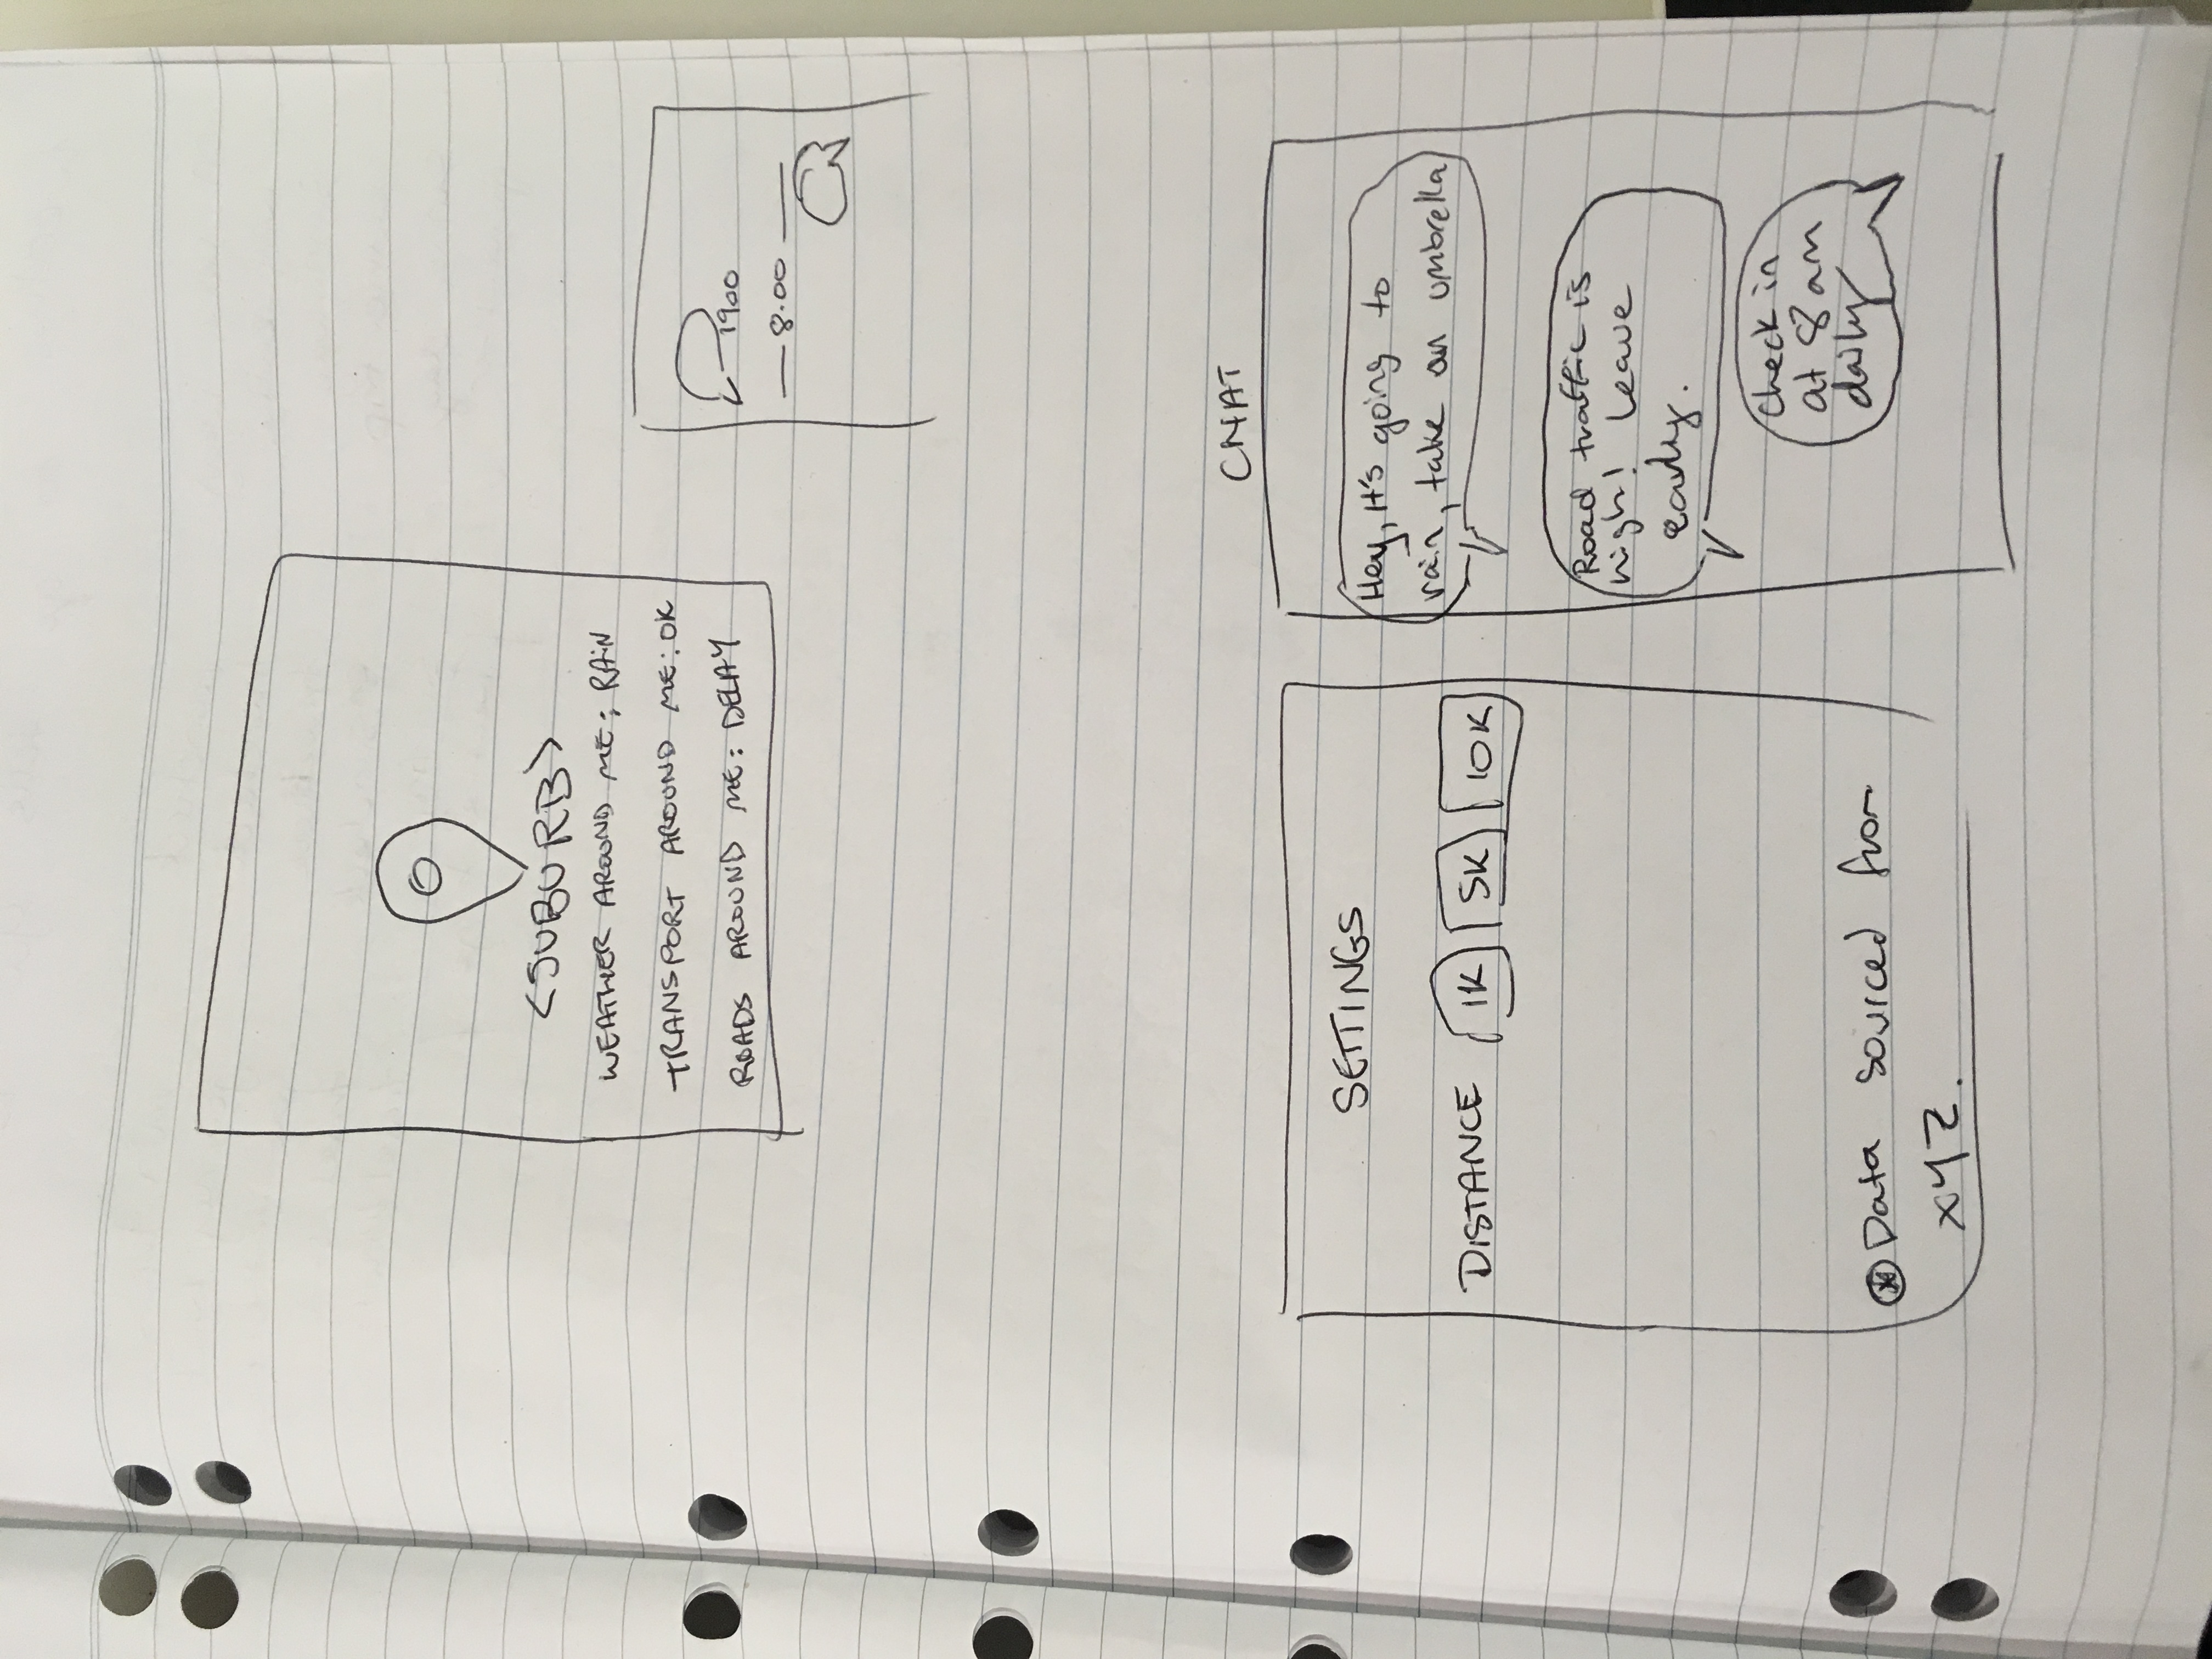 <SUBURB>
WEATHER AROUND ME: RAIN
TRANSPORT AROUND ME: OK
ROADS AROUND ME: DELAY
1900
8.00
SETTINGS
DISTANCE 1K 5K 10K
Data sourced from
XYZ.
CHAT
Hey, it's going to
rain, take an umbrella
Road traffic is
high! Leave
early.
Check in
at 8am
daily